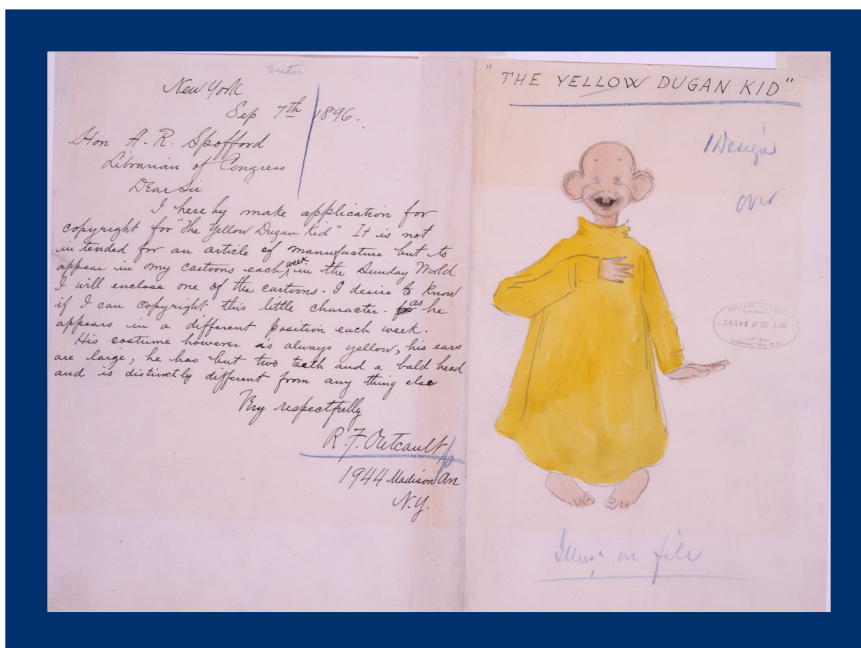 Enter
New York
Sep 7th 1896.
Hon A. R. Spofford
Librarian of Congress
Dear Sir
I here by make application for
copyright for "The Yellow Dugan Kid" It is not
intended for an article of manufacture but to
appear in my cartoons each week in the Sunday World
I will enclose one of the cartoons. I desire to know
if I can copyright this little character. as he
appears in a different position each week.
His costume however is always yellow, his ears
are large, he has but two teeth and a bald head
and is distinctly different from any thing else
Very respectfully
R. F. Outcault
1944 Madison Ave
N.Y.
"THE YELLOW DUGAN KID"
1 Design
over
Illus. on file